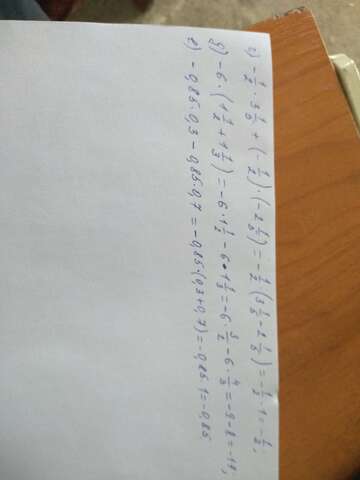 г) -1/2 · 3 1/5 + (-1/2) · (-2 1/5) = -1/2 (3 1/5 - 2 1/5) = -1/2 · 1 = -1/2;
д) -6 · (1 1/2 + 1 1/3) = -6 · 1 1/2 - 6 · 1 1/3 = -6 · 3/2 - 6 · 4/3 = -9 - 8 = -17;
е) -0,85 · 0,3 - 0,85 · 0,7 = -0,85 · (0,3 + 0,7) = -0,85 · 1 = -0,85.